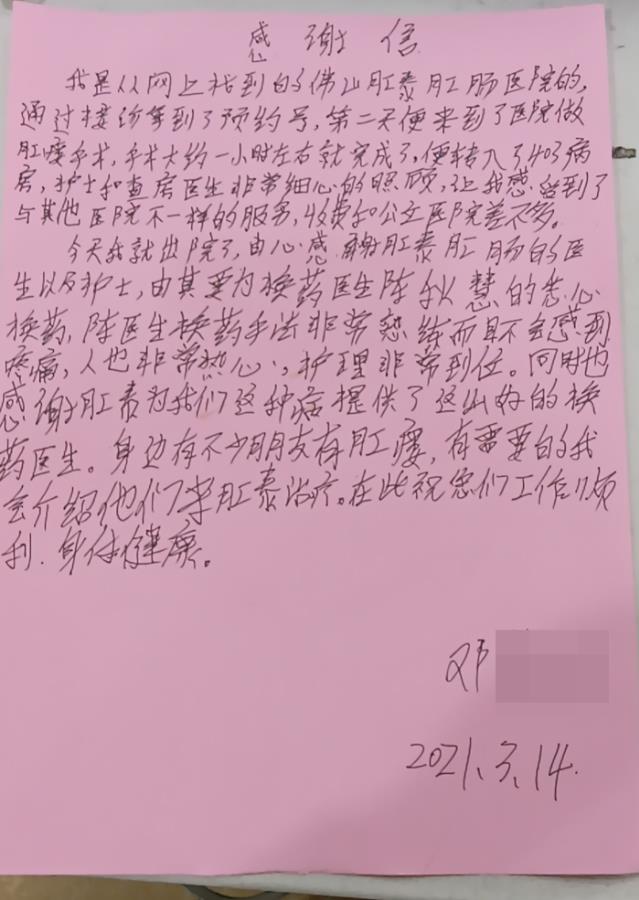 感谢信
我是从网上找到的佛山肛泰肛肠医院的,
通过接诊拿到了预约号,第二天便来到了医院做
肛瘘手术,手术大约一小时左右就完成了,便转入了403病
房,护士和查房医生非常细心的照顾,让我感到了
与其他医院不一样的服务,收费和公立医院差不多。
今天我就出院了,由心感谢肛泰肛肠的医
生以及护士,由其要为换药医生陈秋慧的悉心
换药,陈医生换药手法非常熟练而且不会感到
疼痛,人也非常热心,护理非常到位。同时也
感谢肛泰为我们这种病提供了这出好的换
药医生。身边有不少朋友有肛瘘,有需要的我
会介绍他们来肛泰治疗。在此祝您们工作顺
利.身体健康。
邓
2021.3.14.